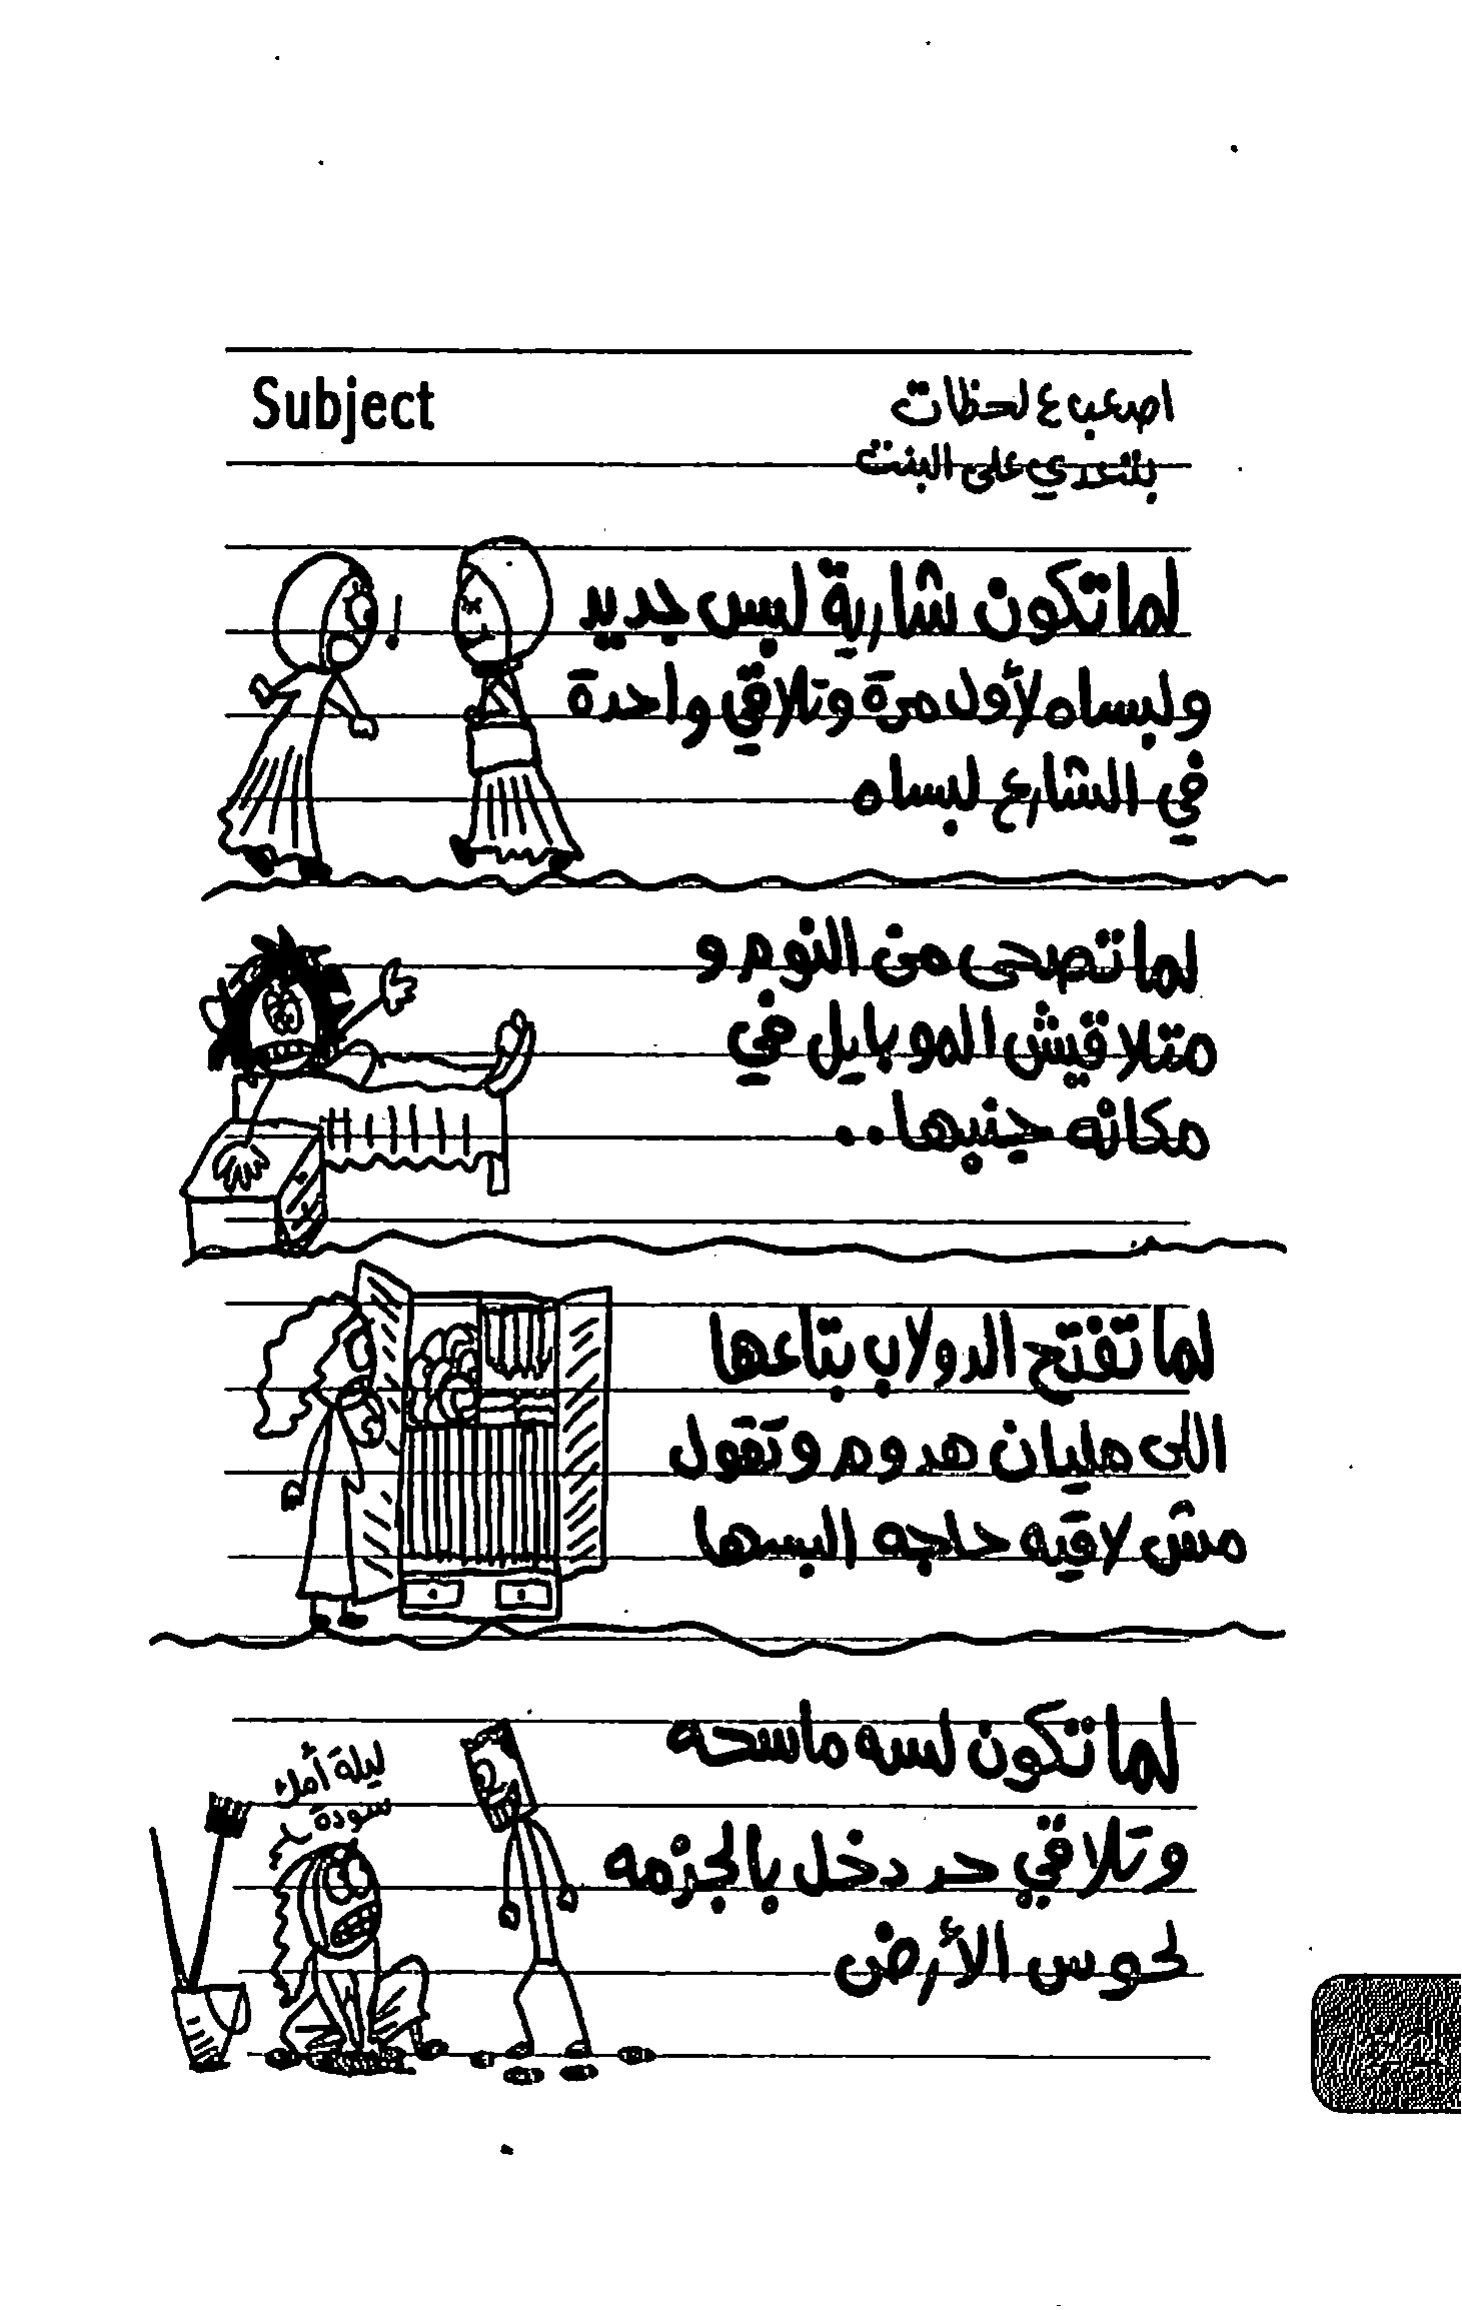 Subject
اصعب ٤ لحظات
بتعدي على البنت
لما تكون شارية لبس جديد
ولبساه لأول مرة وتلاقي واحدة
في الشارع لبساه
!
لما تصحى من النوم و
متلاقيش الموبايل في
مكانه جنبها..
لما تفتح الدولاب بتاعها
اللى مليان هدوم وتقول
مش لاقيه حاجه البسها
لما تكون لسه ماسحه
وتلاقي حد دخل بالجزمه
لحوس الأرض
ليلة أمك
سودة